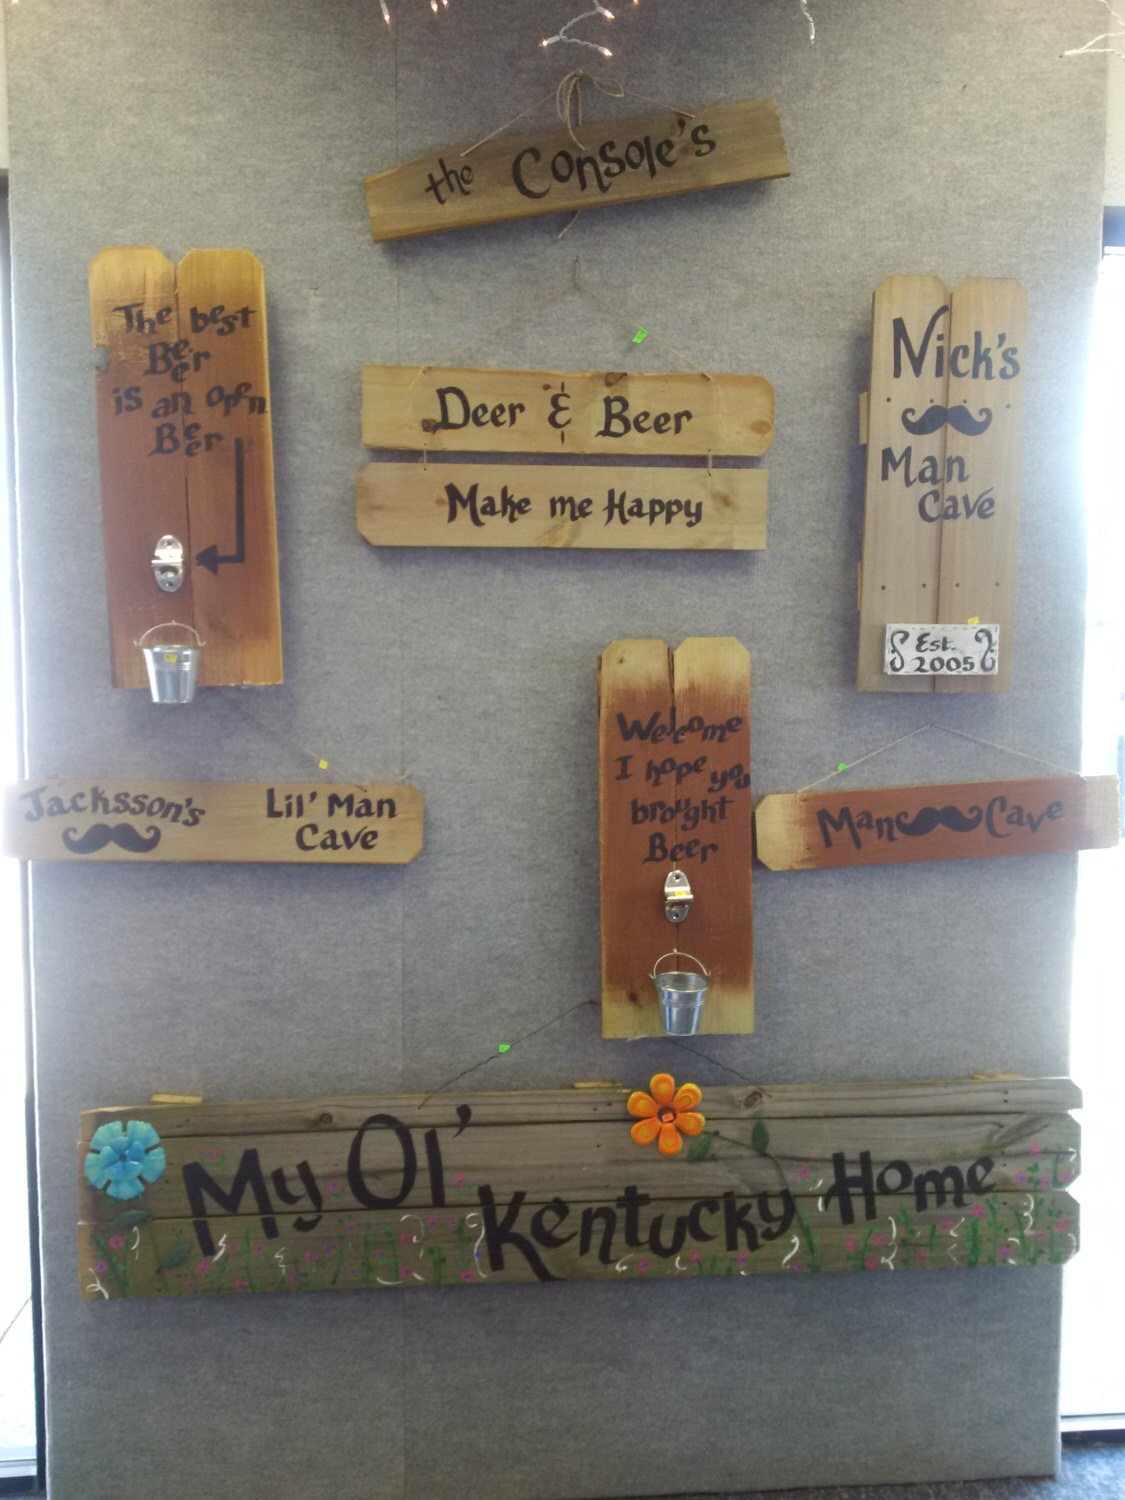 the Console's
The best
Beer
is an open
Beer
Deer & Beer
Make me Happy
Nick's
Man
Cave
Est.
2005
Jacksson's
Lil' Man
Cave
Welcome
I hope you
brought
Beer
Man Cave
My Ol' Kentucky Home